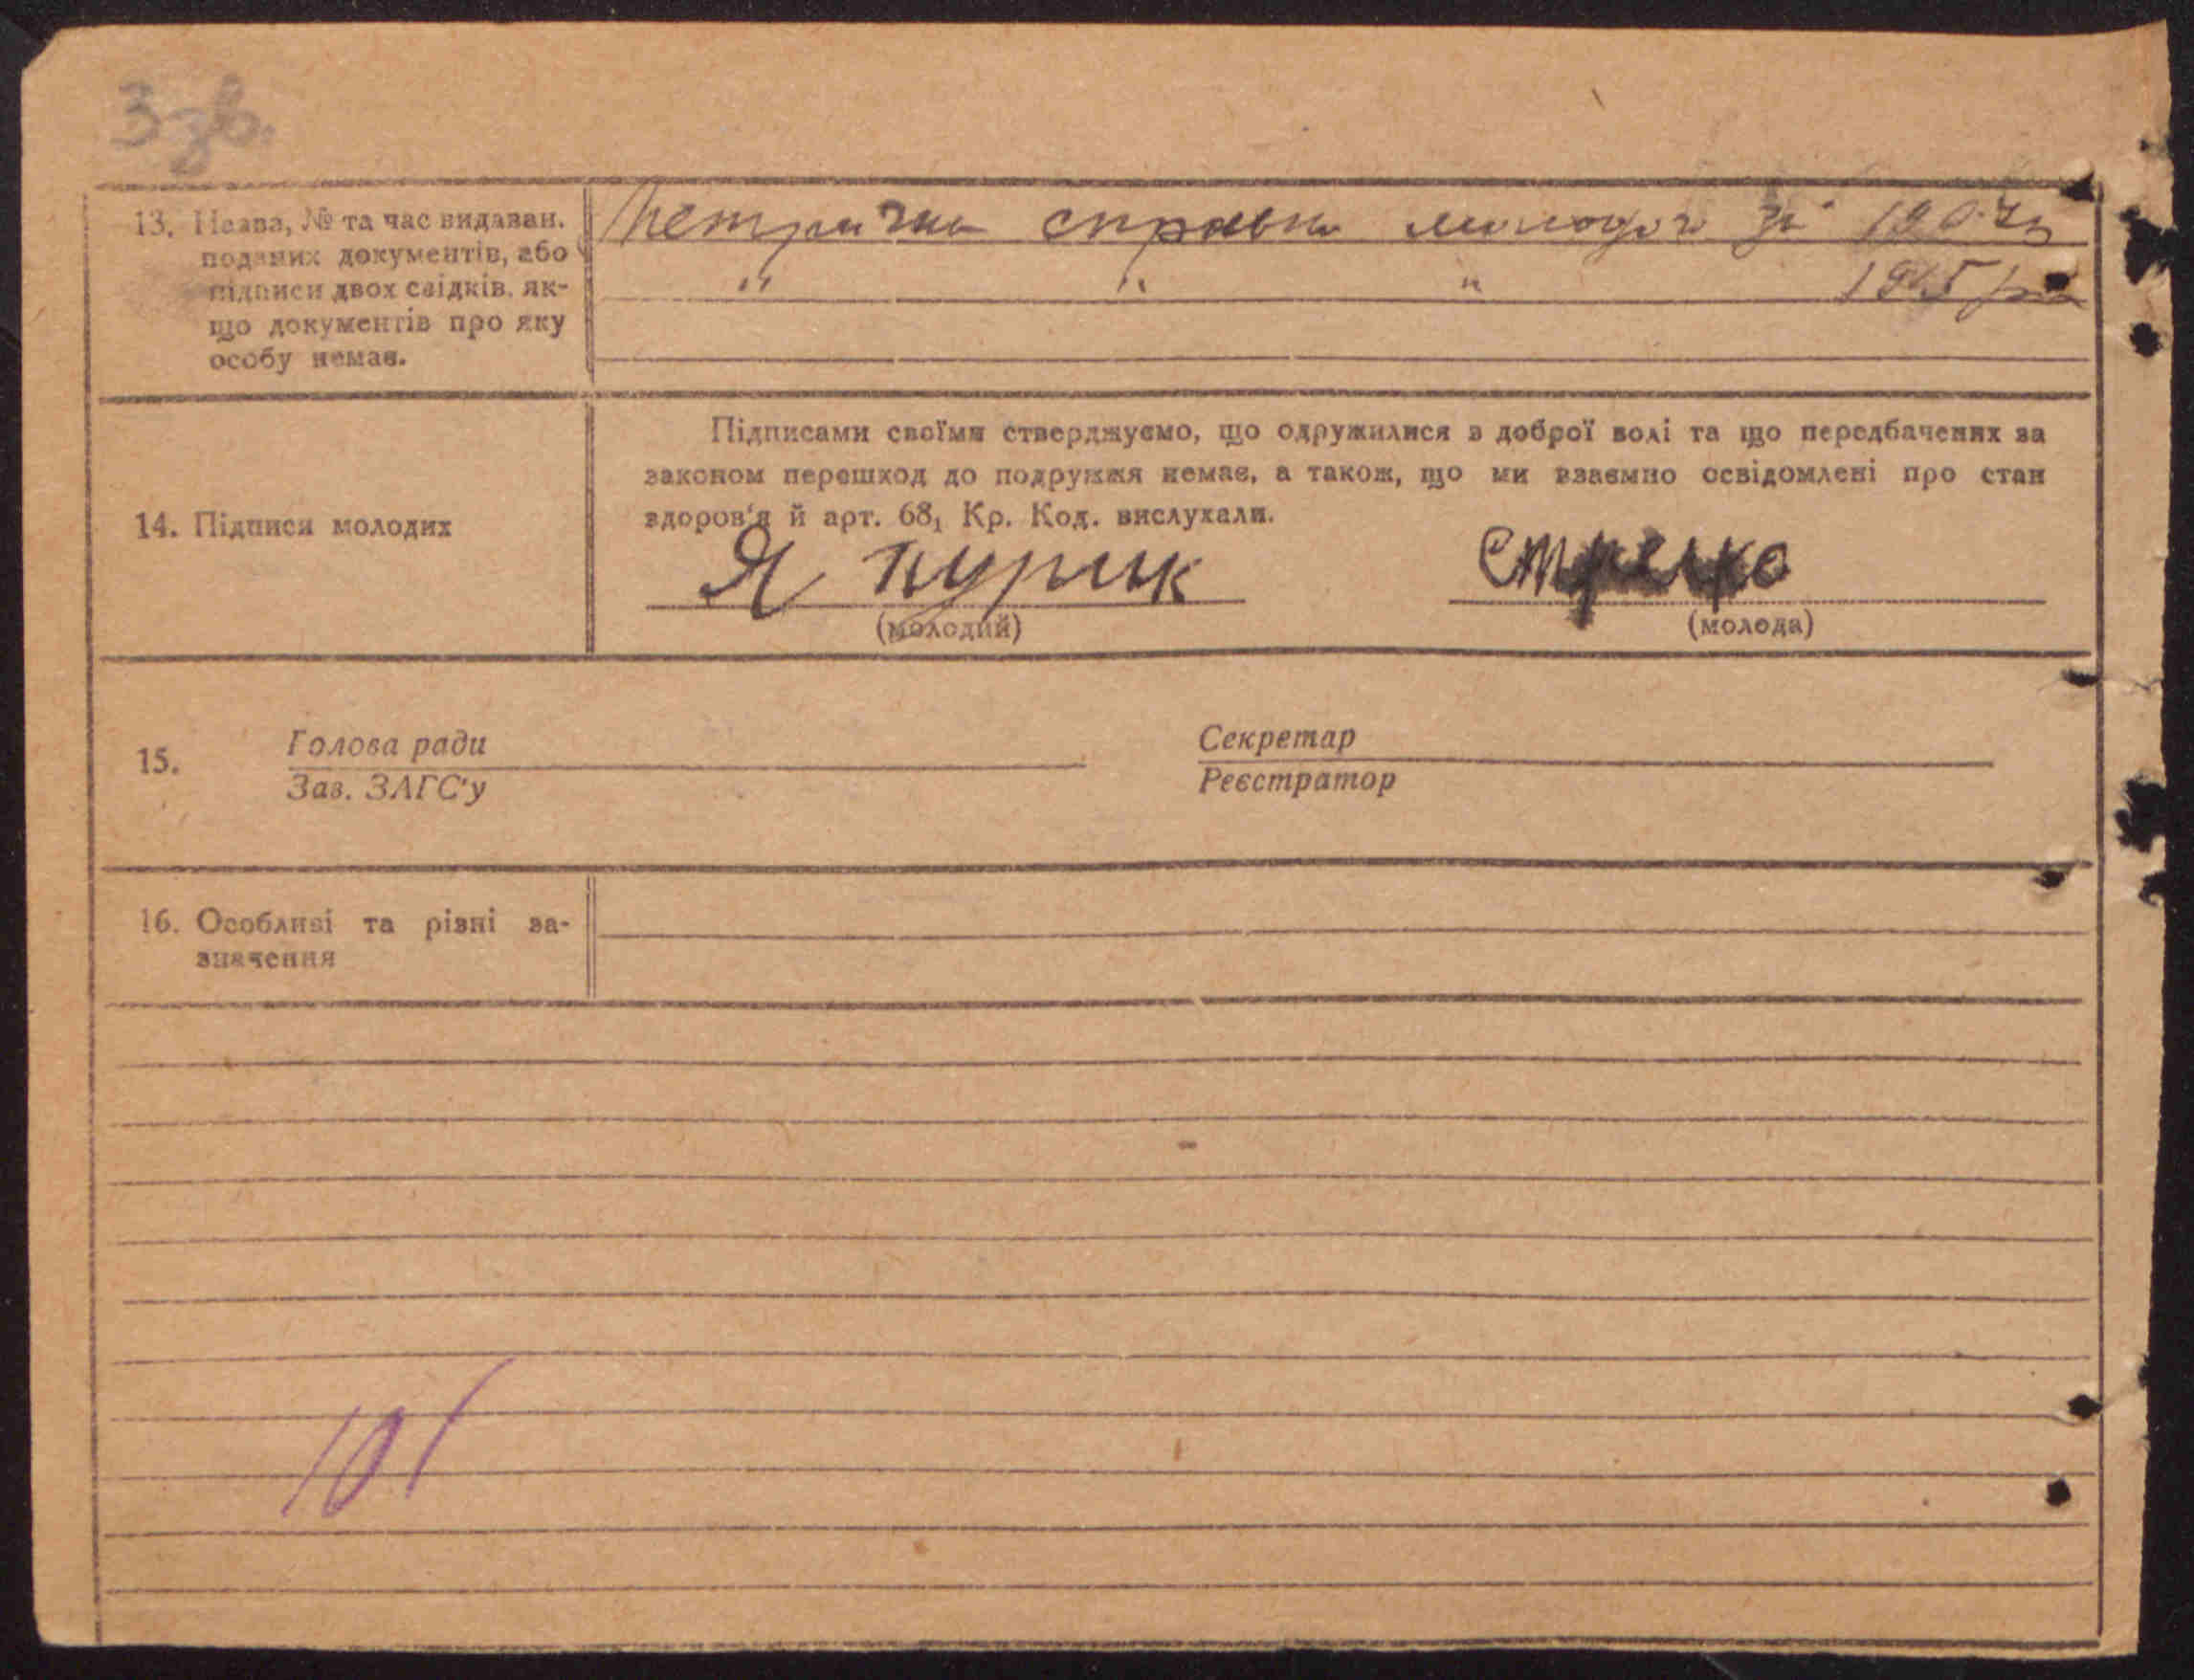 3 зв.
13. Назва, № та час видаван.
поданих документів, або
підписи двох свідків, як-
що документів про яку
особу немає.
Метрична справка молодог за
" " "
14. Підписи молодих
Підписами своїми стверджуємо, що одружилися з доброї волі та що передбачених за
законом перешкод до подружжя немає, а також, що ми взаємно освідомлені про стан
здоров'я й арт. 68₁ Кр. Код. вислухали.
Я Курик
(молодий)
(молода)
15.
Голова ради
Зав. ЗАГС'у
Секретар
Реєстратор
16. Особливі та різні за-
значення